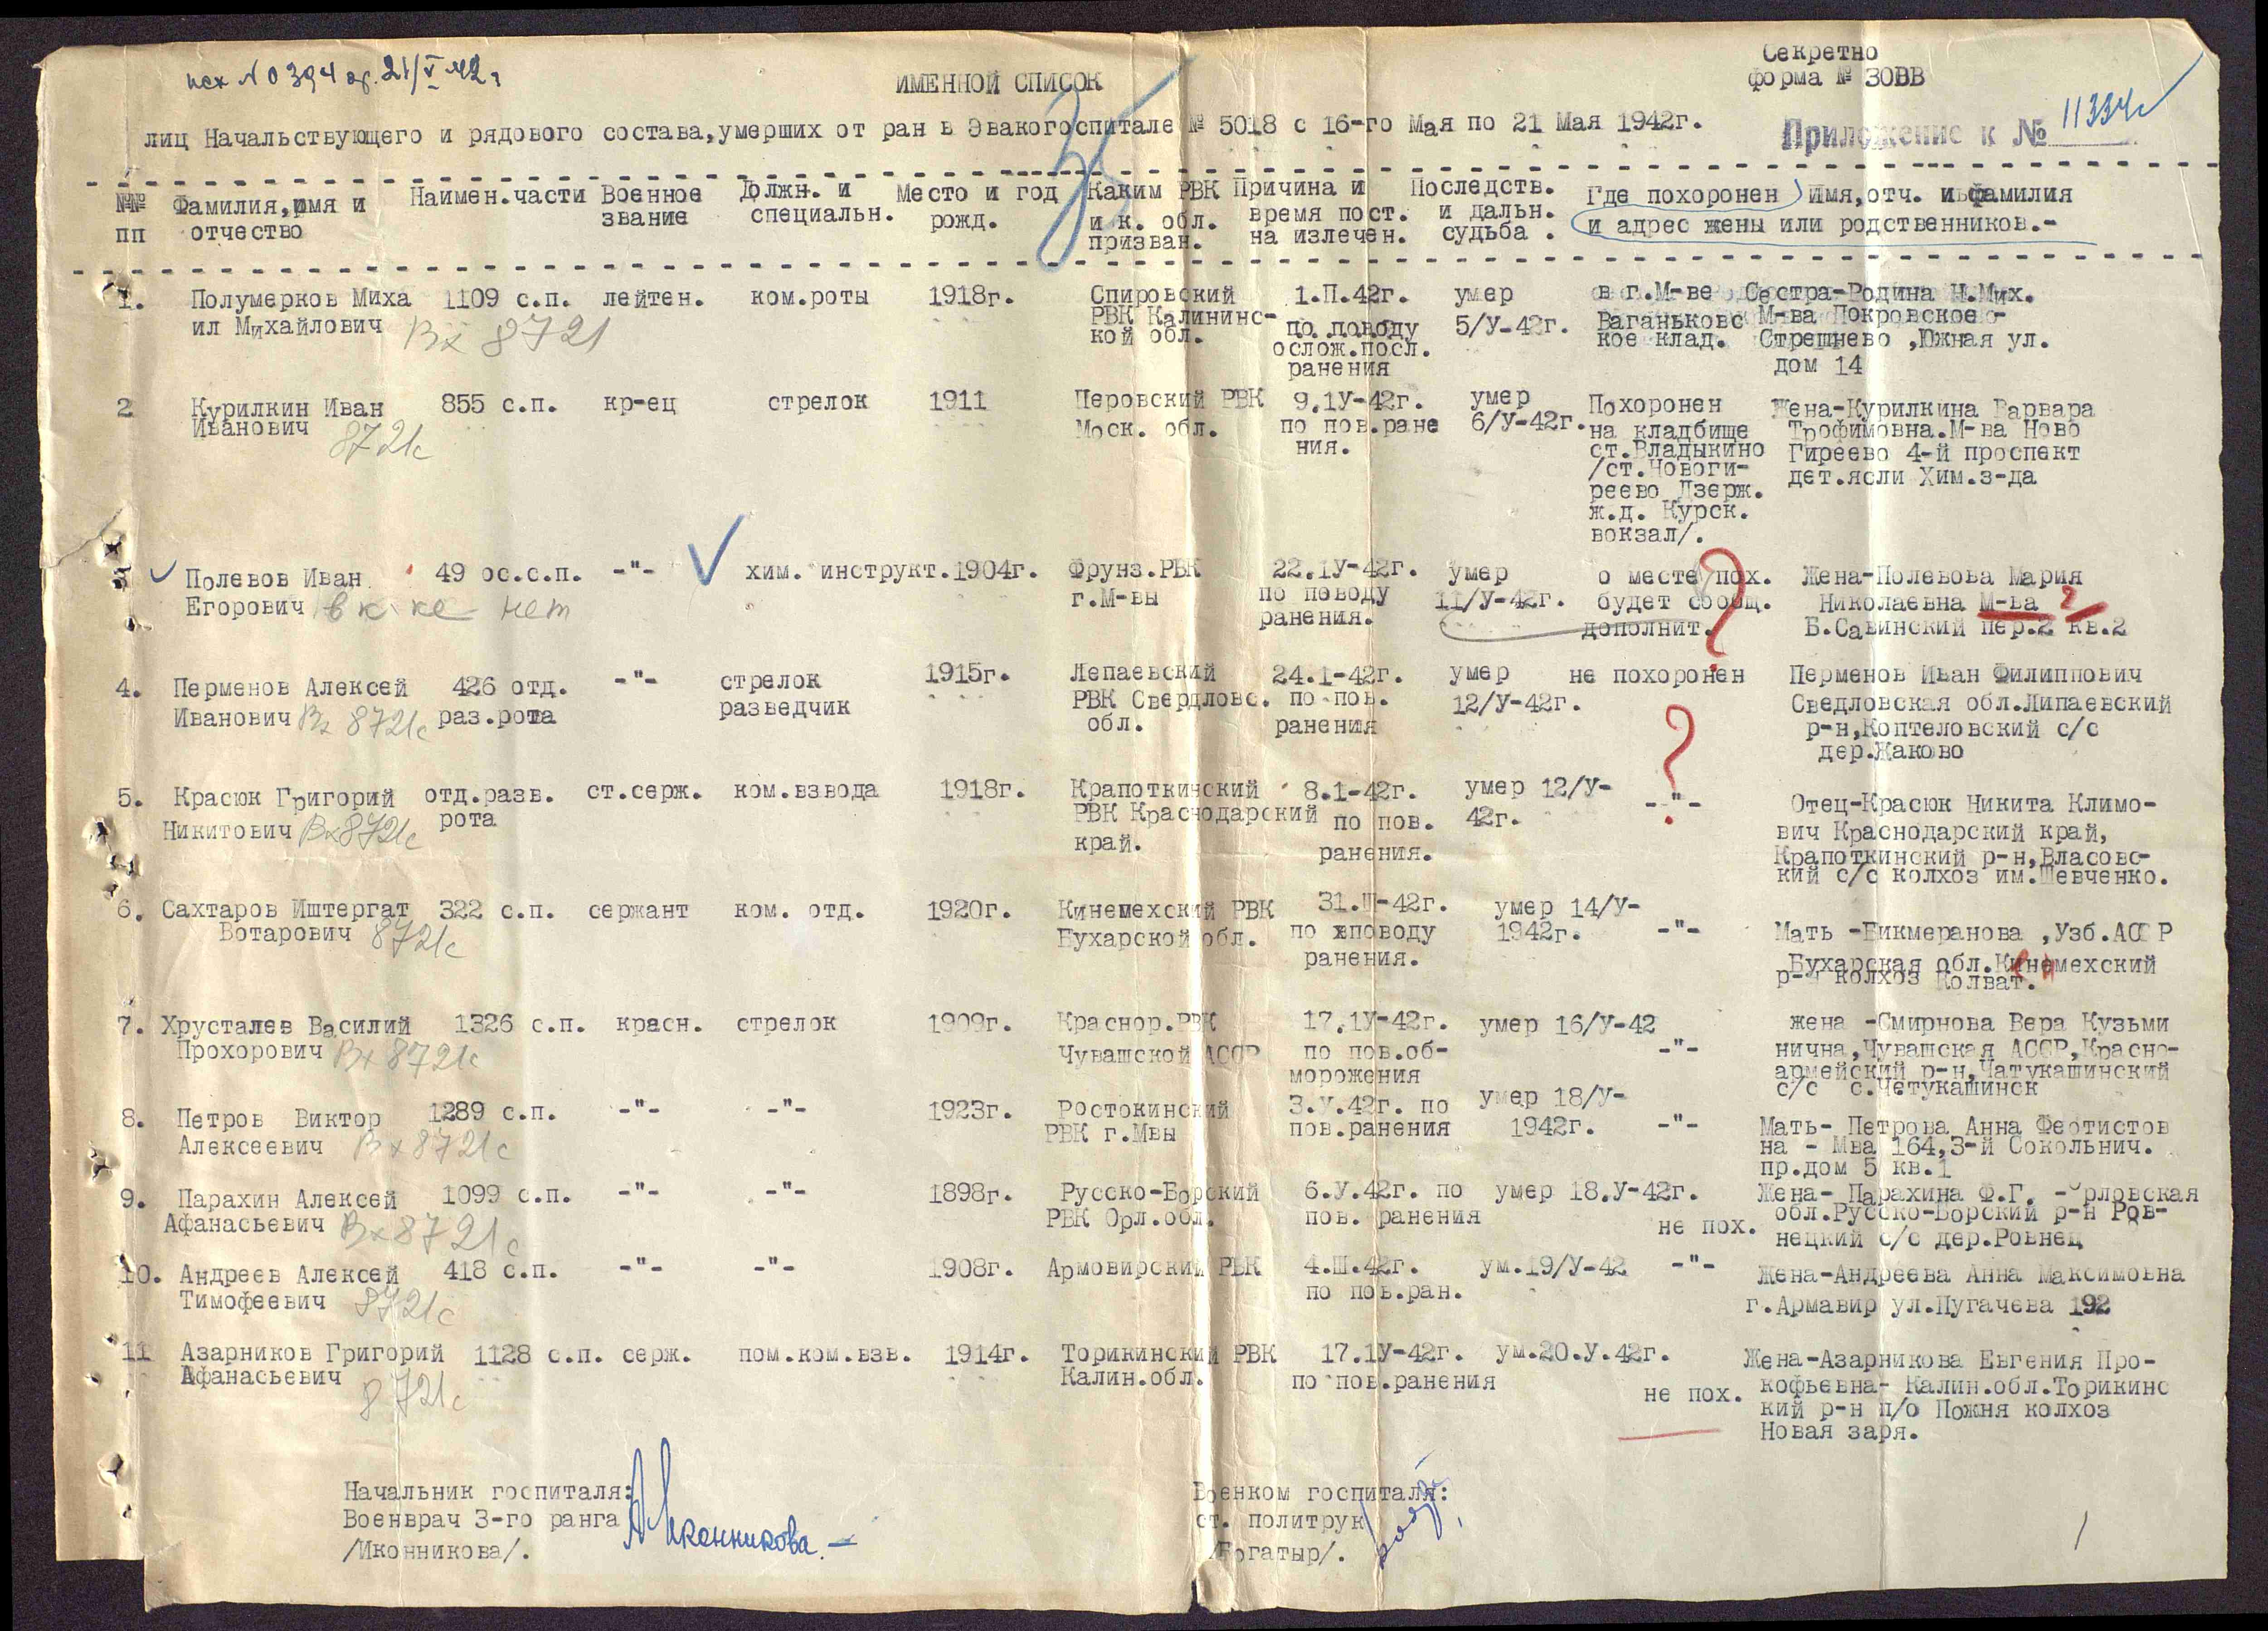 исх № 0394 от 21/V 42г
Секретно
форма № 30ВВ
ИМЕННОЙ СПИСОК
11334с
Приложение к №
лиц Начальствующего и рядового состава,умерших от ран в Эвакогоспитале № 5018 с 16-го Мая по 21 Мая 1942г.
№№ Фамилия,имя и Наимен.части Военное Должн. и Место и год Каким РВК Причина и Последств. Где похоронен Имя,отч. и фамилия
пп отчество звание специальн. рожд. и к. обл. время пост. и дальн. и адрес жены или родственников.-
призван. на излечен. судьба .
1. Полумерков Миха 1109 с.п. лейтен. ком.роты 1918г. Спировский 1.П.42г. умер в г.М-ве Сестра-Родина Н.Мих.
ил Михайлович Вх 8721 РВК Калининс- по поводу 5/У-42г. Ваганьковс М-ва Покровское-
кой обл. ослож.посл. кое клад. Стрешнево ,Южная ул.
ранения дом 14
2 Курилкин Иван 855 с.п. кр-ец стрелок 1911 Перовский РВК 9.1У-42г. умер Похоронен Жена-Курилкина Варвара
Иванович 8721с Моск. обл. по пов.ране 6/У-42г. на кладбище Трофимовна.М-ва Ново
ния. ст.Владыкино Гиреево 4-й проспект
/ст.Новоги- дет.ясли Хим.з-да
реево Дзерж.
ж.д. Курск.
вокзал/.
3 Полевов Иван 49 ос.с.п. -"- хим. инструкт.1904г. Фрунз.РВК 22.1У-42г. умер о месте пох. Жена-Полевова Мария
Егорович в к-ке нет г.М-вы по поводу 11/У-42г. будет сообщ. Николаевна М-ва 2
ранения. дополнит. ? Б.Савинский пер.2 кв.2
4. Перменов Алексей 426 отд. -"- стрелок 1915г. Лепаевский 24.1-42г. умер не похоронен Перменов Иван Филиппович
Иванович Вх 8721с раз.рота разведчик РВК Свердловс. по пов. 12/У-42г. Сведловская обл.Липаевский
обл. ранения ? р-н,Коптеловский с/с
дер.Жаково
5. Красюк Григорий отд.разв. ст.серж. ком.взвода 1918г. Крапоткинский 8.1-42г. умер 12/У- -"- Отец-Красюк Никита Климо-
Никитович Вх8721с рота РВК Краснодарский по пов. 42г. вич Краснодарский край,
край. ранения. Крапоткинский р-н,Власовс-
кий с/с колхоз им.Шевченко.
6. Сахтаров Иштергат 322 с.п. сержант ком. отд. 1920г. Кинемехский РВК 31.Ш-42г. умер 14/У-
Вотарович 8721с Бухарской обл. по поводу 1942г. -"- Мать -Бикмеранова ,Узб.АССР
ранения. Бухарская обл.Кинемехский
р-н колхоз Колват.
7. Хрусталев Василий 1326 с.п. красн. стрелок 1909г. Краснор.РВК 17.1У-42г. умер 16/У-42 жена -Смирнова Вера Кузьми
Прохорович Вх 8721с Чувашской АССР по пов.об- -"- нична,Чувашская АССР,Красно-
морожения армейский р-н,Чатукашинский
с/с с.Четукашинск
8. Петров Виктор 1289 с.п. -"- -"- 1923г. Ростокинский 3.У.42г. по умер 18/У-
Алексеевич Вх8721с РВК г.Мвы пов.ранения 1942г. -"- Мать- Петрова Анна Феотистов
на - Мва 164,3-й Сокольнич.
пр.дом 5 кв.1
9. Парахин Алексей 1099 с.п. -"- -"- 1898г. Русско-Борский 6.У.42г. по умер 18.У-42г. Жена- Парахина Ф.Г. -Орловская
Афанасьевич Вх8721с РВК Орл.обл. пов. ранения не пох. обл.Русско-Борский р-н Ров-
нецкий с/с дер.Ровнец
10. Андреев Алексей 418 с.п. -"- -"- 1908г. Армовирский РВК 4.Ш.42г. ум.19/У-42 -"- Жена-Андреева Анна Максимовна
Тимофеевич 8721с по пов.ран. г.Армавир ул.Пугачева 192
11 Азарников Григорий 1128 с.п. серж. пом.ком.взв. 1914г. Торикинский РВК 17.1У-42г. ум.20.У.42г. Жена-Азарникова Евгения Про-
Афанасьевич 8721с Калин.обл. по пов.ранения не пох. кофьевна- Калин.обл.Торикинс
кий р-н п/о Пожня колхоз
Новая заря.
Начальник госпиталя: Военком госпиталя:
Военврач 3-го ранга Иконникова. ст. политрук
/Иконникова/. /Богатыр/.